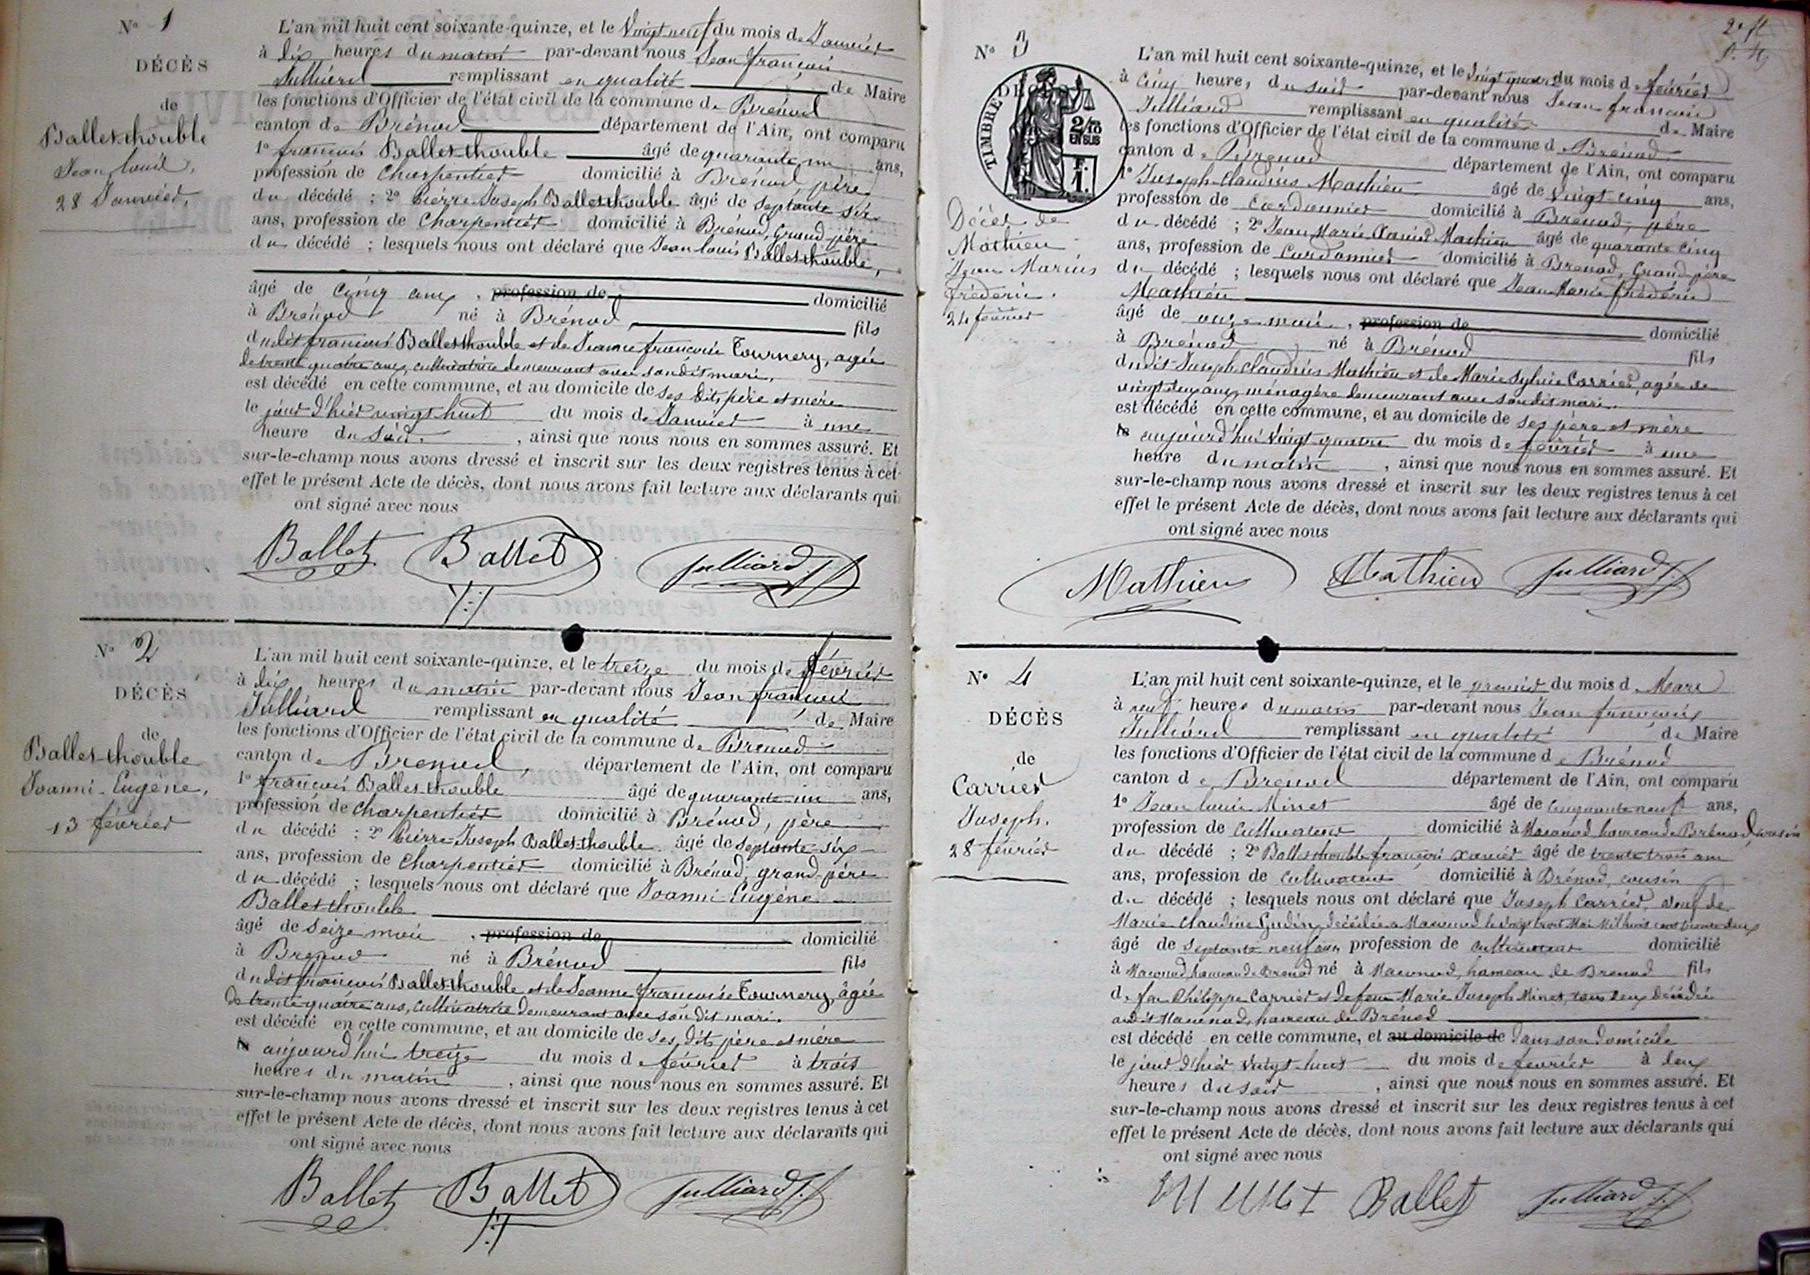 N° 1
DÉCÈS
de
Ballet-thouble
Jean Louis,
28 Janvier.
L'an mil huit cent soixante-quinze, et le vingt neuf du mois de Janvier
à dix heures du matin par-devant nous Jean françois
Julliard remplissant en qualité de Maire
les fonctions d'Officier de l'état civil de la commune de Brénod
canton de Brénod département de l'Ain, ont comparu
1° françois Ballet-thouble âgé de quarante un ans,
profession de Charpentier domicilié à Brénod, père
du décédé ; 2° Pierre Joseph Ballet-thouble âgé de septante six
ans, profession de Charpentier domicilié à Brénod, Grand père
du décédé ; lesquels nous ont déclaré que Jean Louis Ballet-thouble,
âgé de cinq ans, profession de domicilié
à Brénod né à Brénod fils
dudit françois Ballet-thouble et de Jeanne françoise Tournery, agée
de trente quatre ans, cultivatrice demeurant avec son dit mari,
est décédé en cette commune, et au domicile de ses dits père et mère
le jour d'hier vingt huit du mois de Janvier à une
heure du soir, ainsi que nous nous en sommes assuré. Et
sur-le-champ nous avons dressé et inscrit sur les deux registres tenus à cet
effet le présent Acte de décès, dont nous avons fait lecture aux déclarants qui
ont signé avec nous
Ballet Ballet Julliard J. f
N° 2
DÉCÈS
de
Ballet-thouble
Joanni-Eugène,
13 février
L'an mil huit cent soixante-quinze, et le treize du mois de février
à dix heures du matin par-devant nous Jean françois
Julliard remplissant en qualité de Maire
les fonctions d'Officier de l'état civil de la commune de Brenod
canton de Brenod, département de l'Ain, ont comparu
1° françois Ballet-thouble âgé de quarante-un ans,
profession de charpentier domicilié à Brénod, père
du décédé ; 2° Pierre Joseph Ballet-thouble âgé de septante-six
ans, profession de Charpentier domicilié à Brénod, grand-père
du décédé ; lesquels nous ont déclaré que Joanni Eugène
Ballet-thouble
âgé de seize mois, profession de domicilié
à Brenod né à Brénod fils
dudit françois Ballet-thouble et de Jeanne françoise Tournery, âgée
de trente quatre ans, cultivatrice demeurant avec son dit mari.
est décédé en cette commune, et au domicile de ses dits père et mère
aujourd'hui treize du mois de février à trois
heures du matin, ainsi que nous nous en sommes assuré. Et
sur-le-champ nous avons dressé et inscrit sur les deux registres tenus à cet
effet le présent Acte de décès, dont nous avons fait lecture aux déclarants qui
ont signé avec nous
Ballet Ballet Julliard J. f
N° 3
DÉCÈS
TIMBRE
2/10
EN SUS
F.
1.
Décès de
Mathieu
Jean Marius
fréderic.
24 février
L'an mil huit cent soixante-quinze, et le vingt quatre du mois de février
à cinq heures du soir par-devant nous Jean françois
Julliard remplissant en qualité de Maire
les fonctions d'Officier de l'état civil de la commune de Brénod
canton de Brenod département de l'Ain, ont comparu
1° Joseph-Claudius Mathieu âgé de vingt cinq ans,
profession de Cordonnier domicilié à Brenod, père
du décédé ; 2° Jean Marie Mathieu âgé de quarante cinq
ans, profession de Cordonnier domicilié à Brenod, Grand père
du décédé ; lesquels nous ont déclaré que Jean Marie fréderic
Mathieu
âgé de onze mois, profession de domicilié
à Brénod né à Brénod fils
dudit Joseph Claudius Mathieu et de Marie Sylvie Carrier, agée de
vingt deux ans, ménagère demeurant avec son dit mari.
est décédé en cette commune, et au domicile de ses père et mère
aujourd'hui vingt quatre du mois de février à une
heure du matin, ainsi que nous nous en sommes assuré. Et
sur-le-champ nous avons dressé et inscrit sur les deux registres tenus à cet
effet le présent Acte de décès, dont nous avons fait lecture aux déclarants qui
ont signé avec nous
Mathieu Mathieu Julliard J. f
N° 4
DÉCÈS
de
Carrier
Joseph.
28 février
L'an mil huit cent soixante-quinze, et le premier du mois de Mars
à neuf heures du matin par-devant nous Jean françois
Julliard remplissant en qualité de Maire
les fonctions d'Officier de l'état civil de la commune de Brénod
canton de Brenod département de l'Ain, ont comparu
1° Jean Louis Minet âgé de cinquante neuf ans,
profession de Cultivateur domicilié à Maconod hameau de Brénod, cousin
du décédé ; 2° Ballet-thouble françois xavier âgé de trente trois ans
ans, profession de Cultivateur domicilié à Brénod, cousin
du décédé ; lesquels nous ont déclaré que Joseph Carrier, veuf de
Marie Claudine Gudin, décédée à Maconod le vingt trois Mai Mil huit cent
âgé de septante neuf ans profession de cultivateur domicilié
à Maconod, hameau de Brenod né à Maconod, hameau de Brenod fils
de feu Philippe Carrier et de feue Marie Joseph Minet, tous deux décédés
audit Maconod, hameau de Brénod
est décédé en cette commune, et au domicile de dans son domicile
le jour d'hier vingt-huit du mois de février à deux
heures du soir, ainsi que nous nous en sommes assuré. Et
sur-le-champ nous avons dressé et inscrit sur les deux registres tenus à cet
effet le présent Acte de décès, dont nous avons fait lecture aux déclarants qui
ont signé avec nous
Minet Ballet Julliard J. f